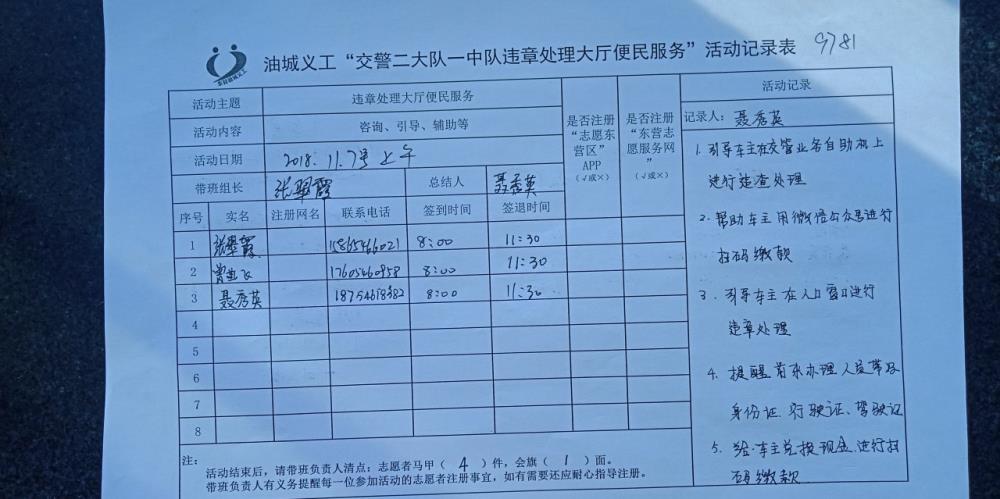 油城义工“交警二大队一中队违章处理大厅便民服务”活动记录表 9781
活动主题 违章处理大厅便民服务
活动内容 咨询、引导、辅助等
活动日期 2018.11.7号上午
带班组长 张翠霞 总结人 聂秀英
序号 实名 注册网名 联系电话 签到时间 签退时间
是否注册“志愿东营区”APP（√或×）
是否注册“东营志愿服务网”（√或×）
1 张翠霞 15865466021 8:00 11:30
2 17605460958 8:00 11:30
3 聂秀英 18754618382 8:00 11:30
4
5
6
7
8
注：
活动结束后，请带班负责人清点：志愿者马甲（ 4 ）件，会旗（ 1 ）面。
带班负责人有义务提醒每一位参加活动的志愿者注册事宜，如有需要还应耐心指导注册。
活动记录
记录人：聂秀英
1. 引导车主在交管业务自助机上
进行违查处理
2. 帮助车主用微信公众号进行
扫码缴款
3. 引导车主在人口窗口进行
违章处理
4. 提醒前来办理人员带好
身份证、行驶证、驾驶证
5. 给车主兑换现金进行扫
码缴款